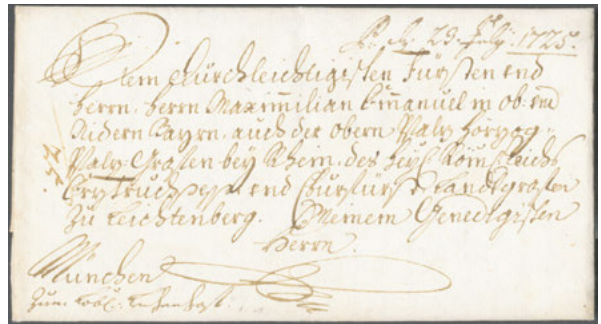 23. July. 1725.
Dem Durchleichtigisten Fürsten vnd
Herrn. Herrn Maximilian Emanuel in ob: vnd
Nidern Bayrn. auch der obern Pfalz Herzog
Pfalz Grafen bey Rhein. des Heyl: Röm: Reichs
Erztruchsess vnd Churfürst Landtgrafen
Zu Leichtenberg. Meinem Genedigisten
Herrn.
München
Zum